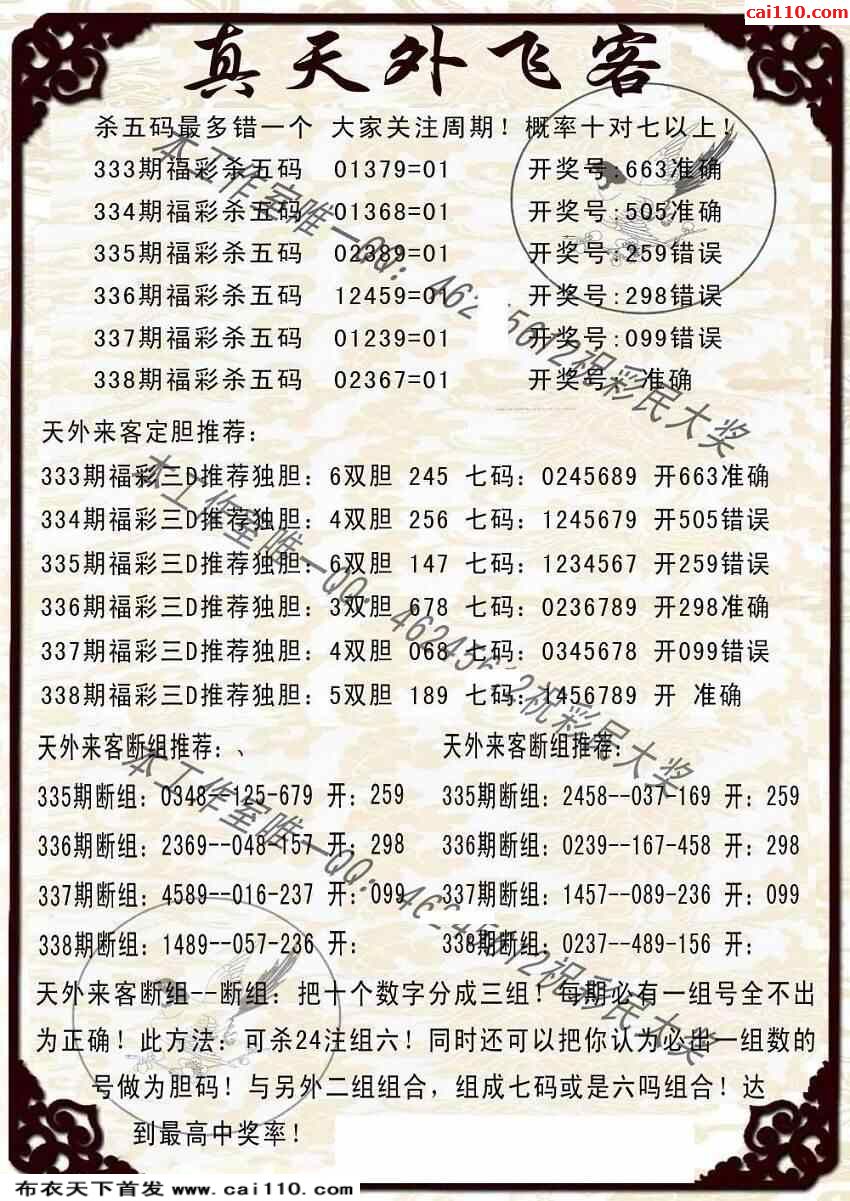 cai110.com
真天外飞客
杀五码最多错一个 大家关注周期！概率十对七以上！
333期福彩杀五码 01379=01 开奖号:663准确
334期福彩杀五码 01368=01 开奖号:505准确
335期福彩杀五码 02389=01 开奖号:259错误
336期福彩杀五码 12459=01 开奖号:298错误
337期福彩杀五码 01239=01 开奖号:099错误
338期福彩杀五码 02367=01 开奖号: 准确
天外来客定胆推荐：
333期福彩三D推荐独胆：6双胆 245 七码：0245689 开663准确
334期福彩三D推荐独胆：4双胆 256 七码：1245679 开505错误
335期福彩三D推荐独胆：6双胆 147 七码：1234567 开259错误
336期福彩三D推荐独胆：3双胆 678 七码：0236789 开298准确
337期福彩三D推荐独胆：4双胆 068 七码：0345678 开099错误
338期福彩三D推荐独胆：5双胆 189 七码：1456789 开 准确
天外来客断组推荐：、 天外来客断组推荐：
335期断组：0348--125-679 开：259 335期断组：2458--037-169 开：259
336期断组：2369--048-157 开：298 336期断组：0239--167-458 开：298
337期断组：4589--016-237 开：099 337期断组：1457--089-236 开：099
338期断组：1489--057-236 开： 338期断组：0237--489-156 开：
天外来客断组--断组：把十个数字分成三组！每期必有一组号全不出
为正确！此方法：可杀24注组六！同时还可以把你认为必出一组数的
号做为胆码！与另外二组组合，组成七码或是六吗组合！达
到最高中奖率！
本工作室唯一QQ：46245612祝彩民大奖
本工作室唯一QQ：46245612祝彩民大奖
本工作室唯一QQ：46245612祝彩民大奖
布衣天下首发 www.cai110.com